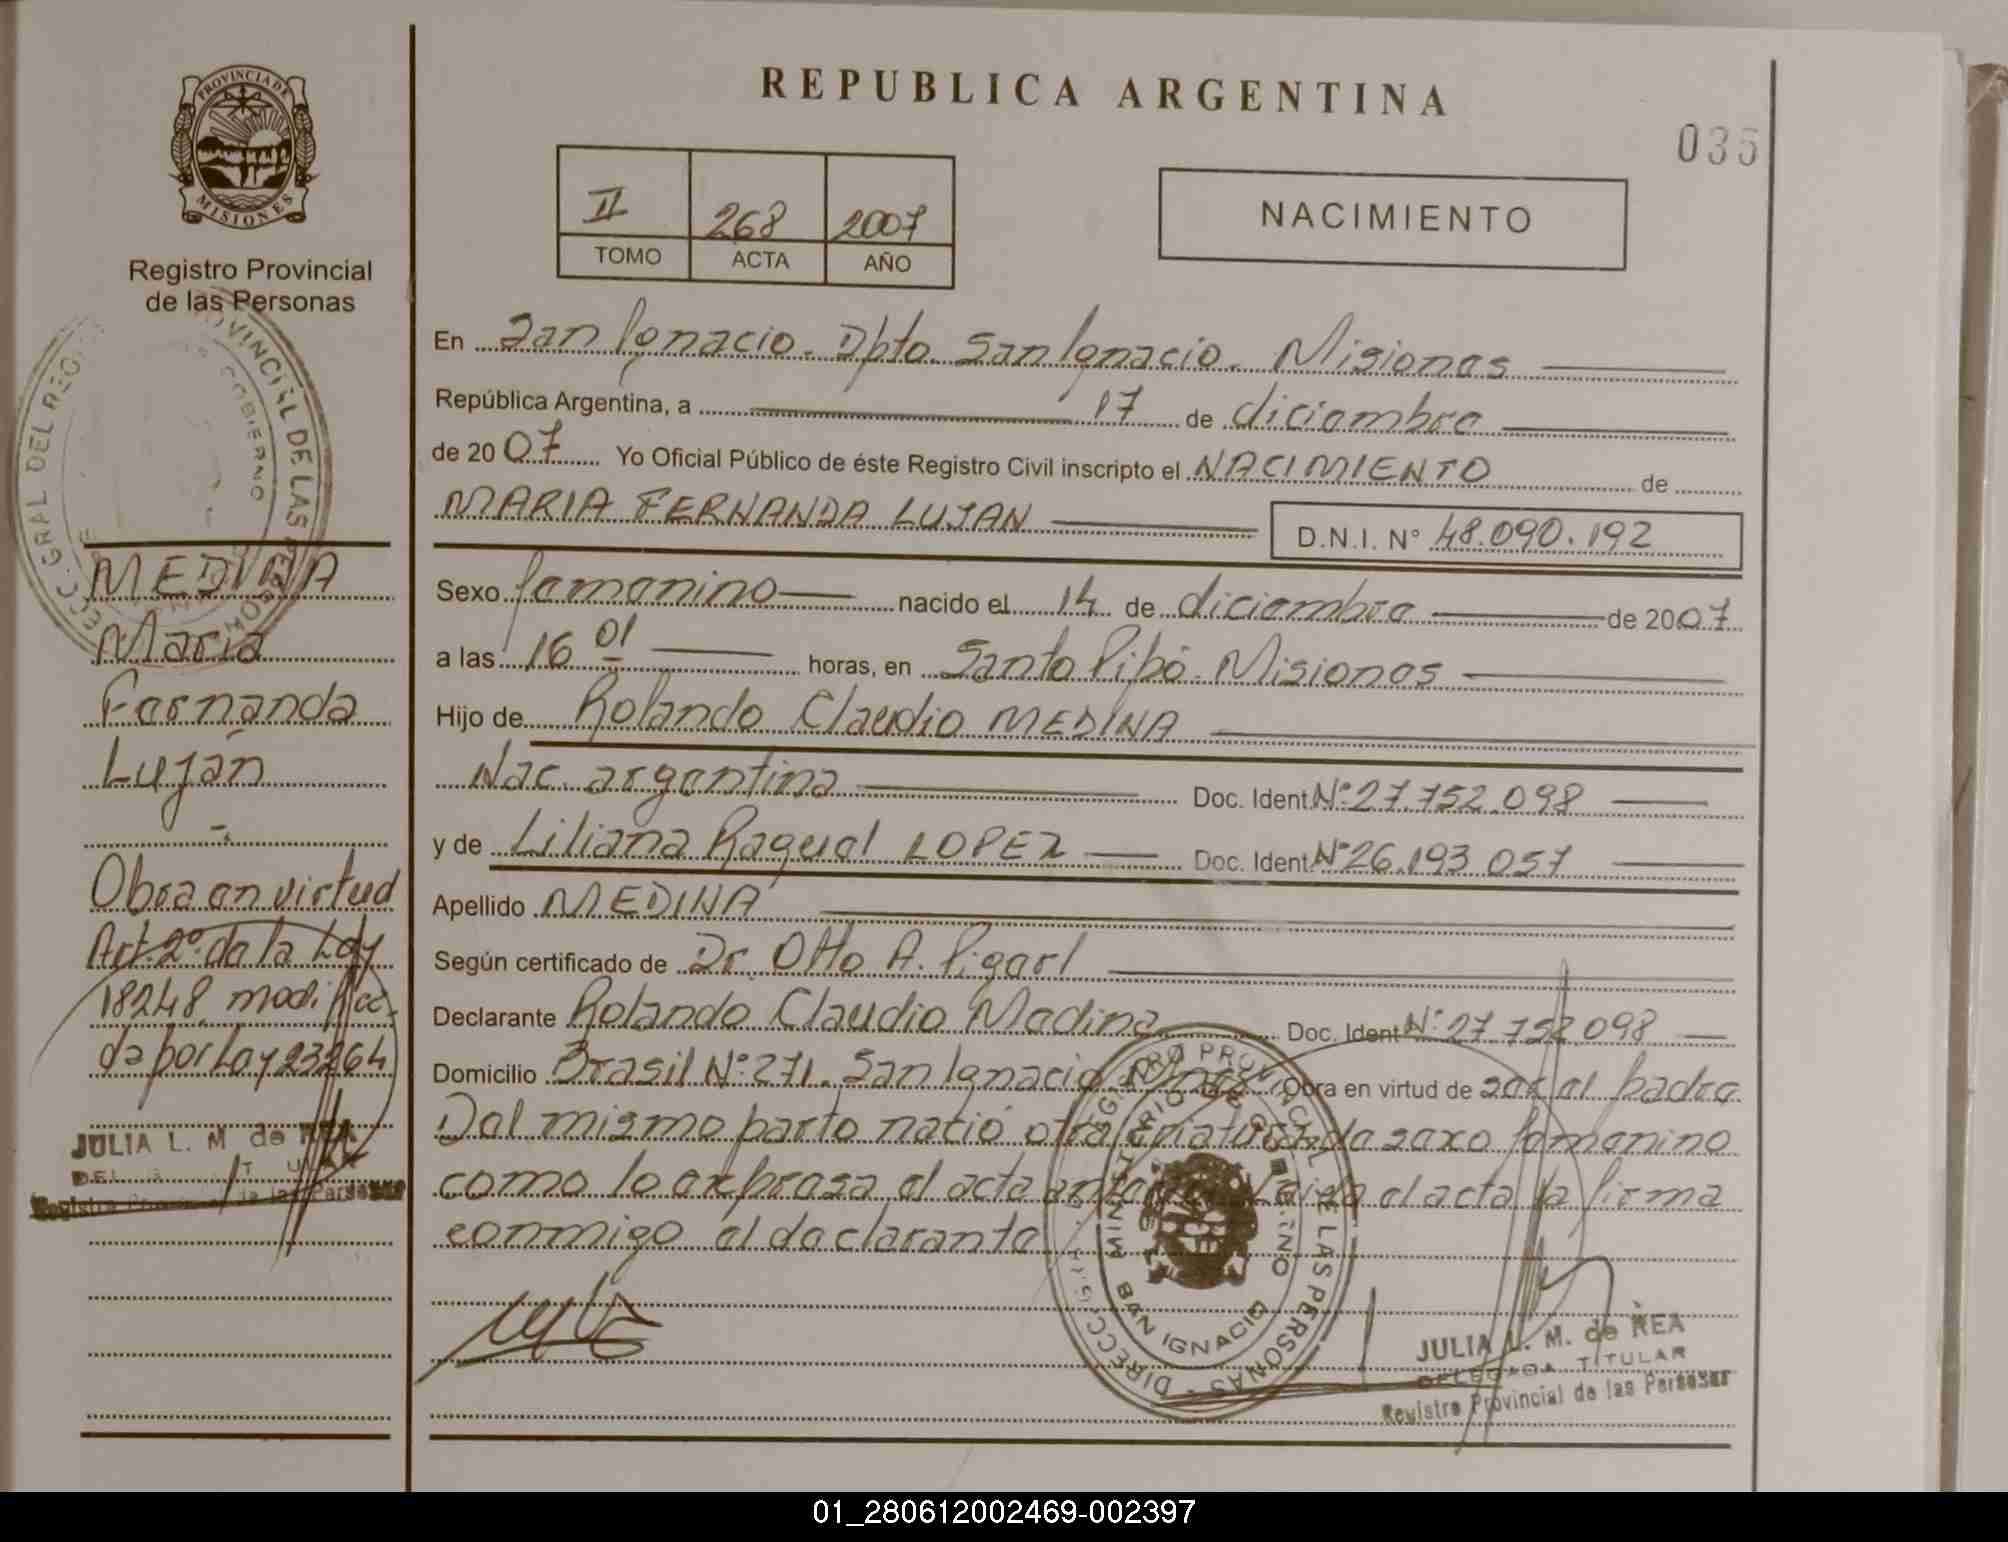 PROVINCIA DE
MISIONES
Registro Provincial
de las Personas
MEDINA
Maria
Fernanda
Luján
Obra en virtud
Art. 2º de la Ley
18248 modifica-
da por Ley 23264
JULIA L. M. de REA
REPUBLICA ARGENTINA
035
II 268 2007
TOMO ACTA AÑO
NACIMIENTO
En San Ignacio. Dpto. San Ignacio. Misiones
República Argentina, a 17 de diciembre
de 2007 Yo Oficial Público de éste Registro Civil inscripto el NACIMIENTO de
MARIA FERNANDA LUJAN D.N.I. Nº 48.090.192
Sexo femenino nacido el 14 de diciembre de 2007
a las 16 01 horas, en Santo Pipó. Misiones
Hijo de Rolando Claudio MEDINA
Nac. argentina Doc. Ident. Nº 27.752.098
y de Liliana Raquel LOPEZ Doc. Ident. Nº 26.193.057
Apellido MEDINA
Según certificado de Dr. Otto A. Pigerl
Declarante Rolando Claudio Medina Doc. Ident Nº 27.752.098
Domicilio Brasil Nº 271. San Ignacio. Mnes. Obra en virtud de ser el padre.
Del mismo parto nació otra criatura de sexo femenino
como lo expresa el acta anterior. Leida el acta la firma
conmigo el declarante
DIRECC. GRAL. DEL REGISTRO PROVINCIAL DE LAS PERSONAS
MINISTERIO DE GOBIERNO
SAN IGNACIO
JULIA L. M. de REA
DELEGADA TITULAR
Registro Provincial de las Personas
01_280612002469-002397